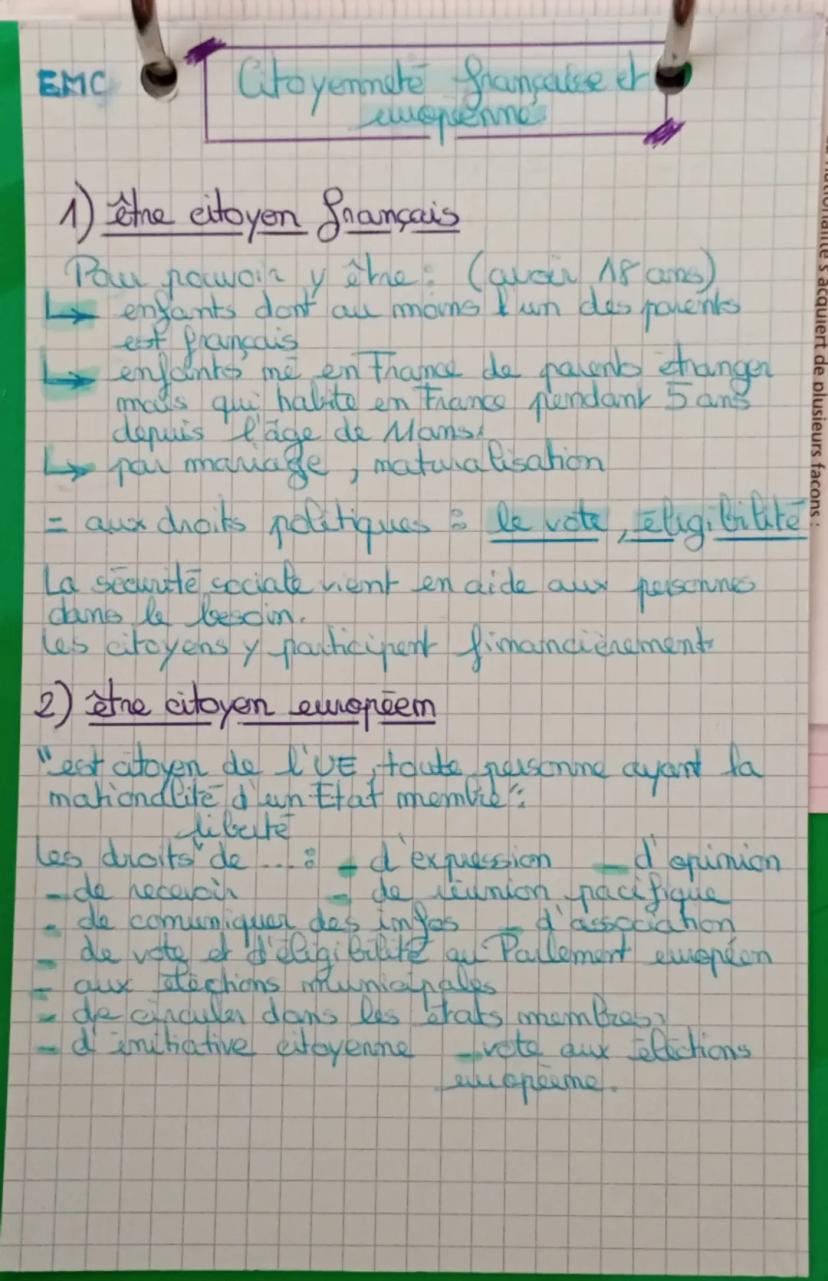 EMC
Citoyenneté française et
européenne
1) être citoyen français
Pour pouvoir y être : (avoir 18 ans)
↳ enfants dont au moins l'un des parents
est français
↳ enfants né en France de parents étranger
mais qui habite en France pendant 5 ans
depuis l'âge de 11ans.
↳ par mariage, naturalisation
= aux droits politiques : le vote, éligibilité
La sécurité sociale vient en aide aux personnes
dans le besoin.
Les citoyens y participent financièrement
2) être citoyen européen
"est citoyen de l'UE, toute personne ayant la
nationalité d'un Etat membre":
liberté
Les droits de ... : - d'expression - d'opinion
- de recevoir - de réunion pacifique
- de comuniquer des infos - d'association
- de vote et d'éligibilité au Parlement européen
- aux éléctions municipales
- de circuler dans les états membres,
- d'initiative citoyenne - vote aux éléctions
européenne.
nationalité s'acquiert de plusieurs façons :